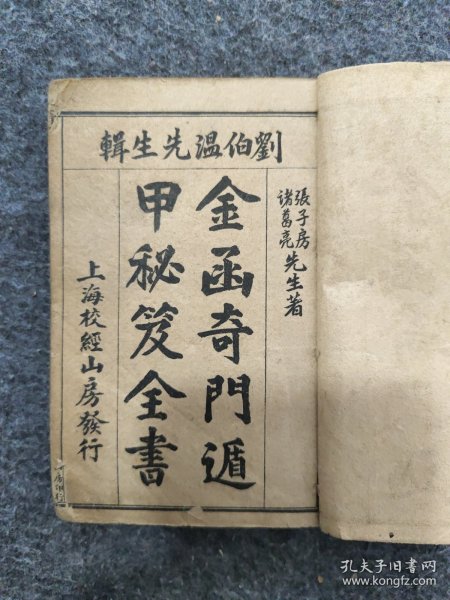 劉伯溫先生輯
張子房
諸葛亮
先生著
金函奇門遁
甲秘笈全書
上海校經山房發行
孔夫子旧书网
www.kongfz.com